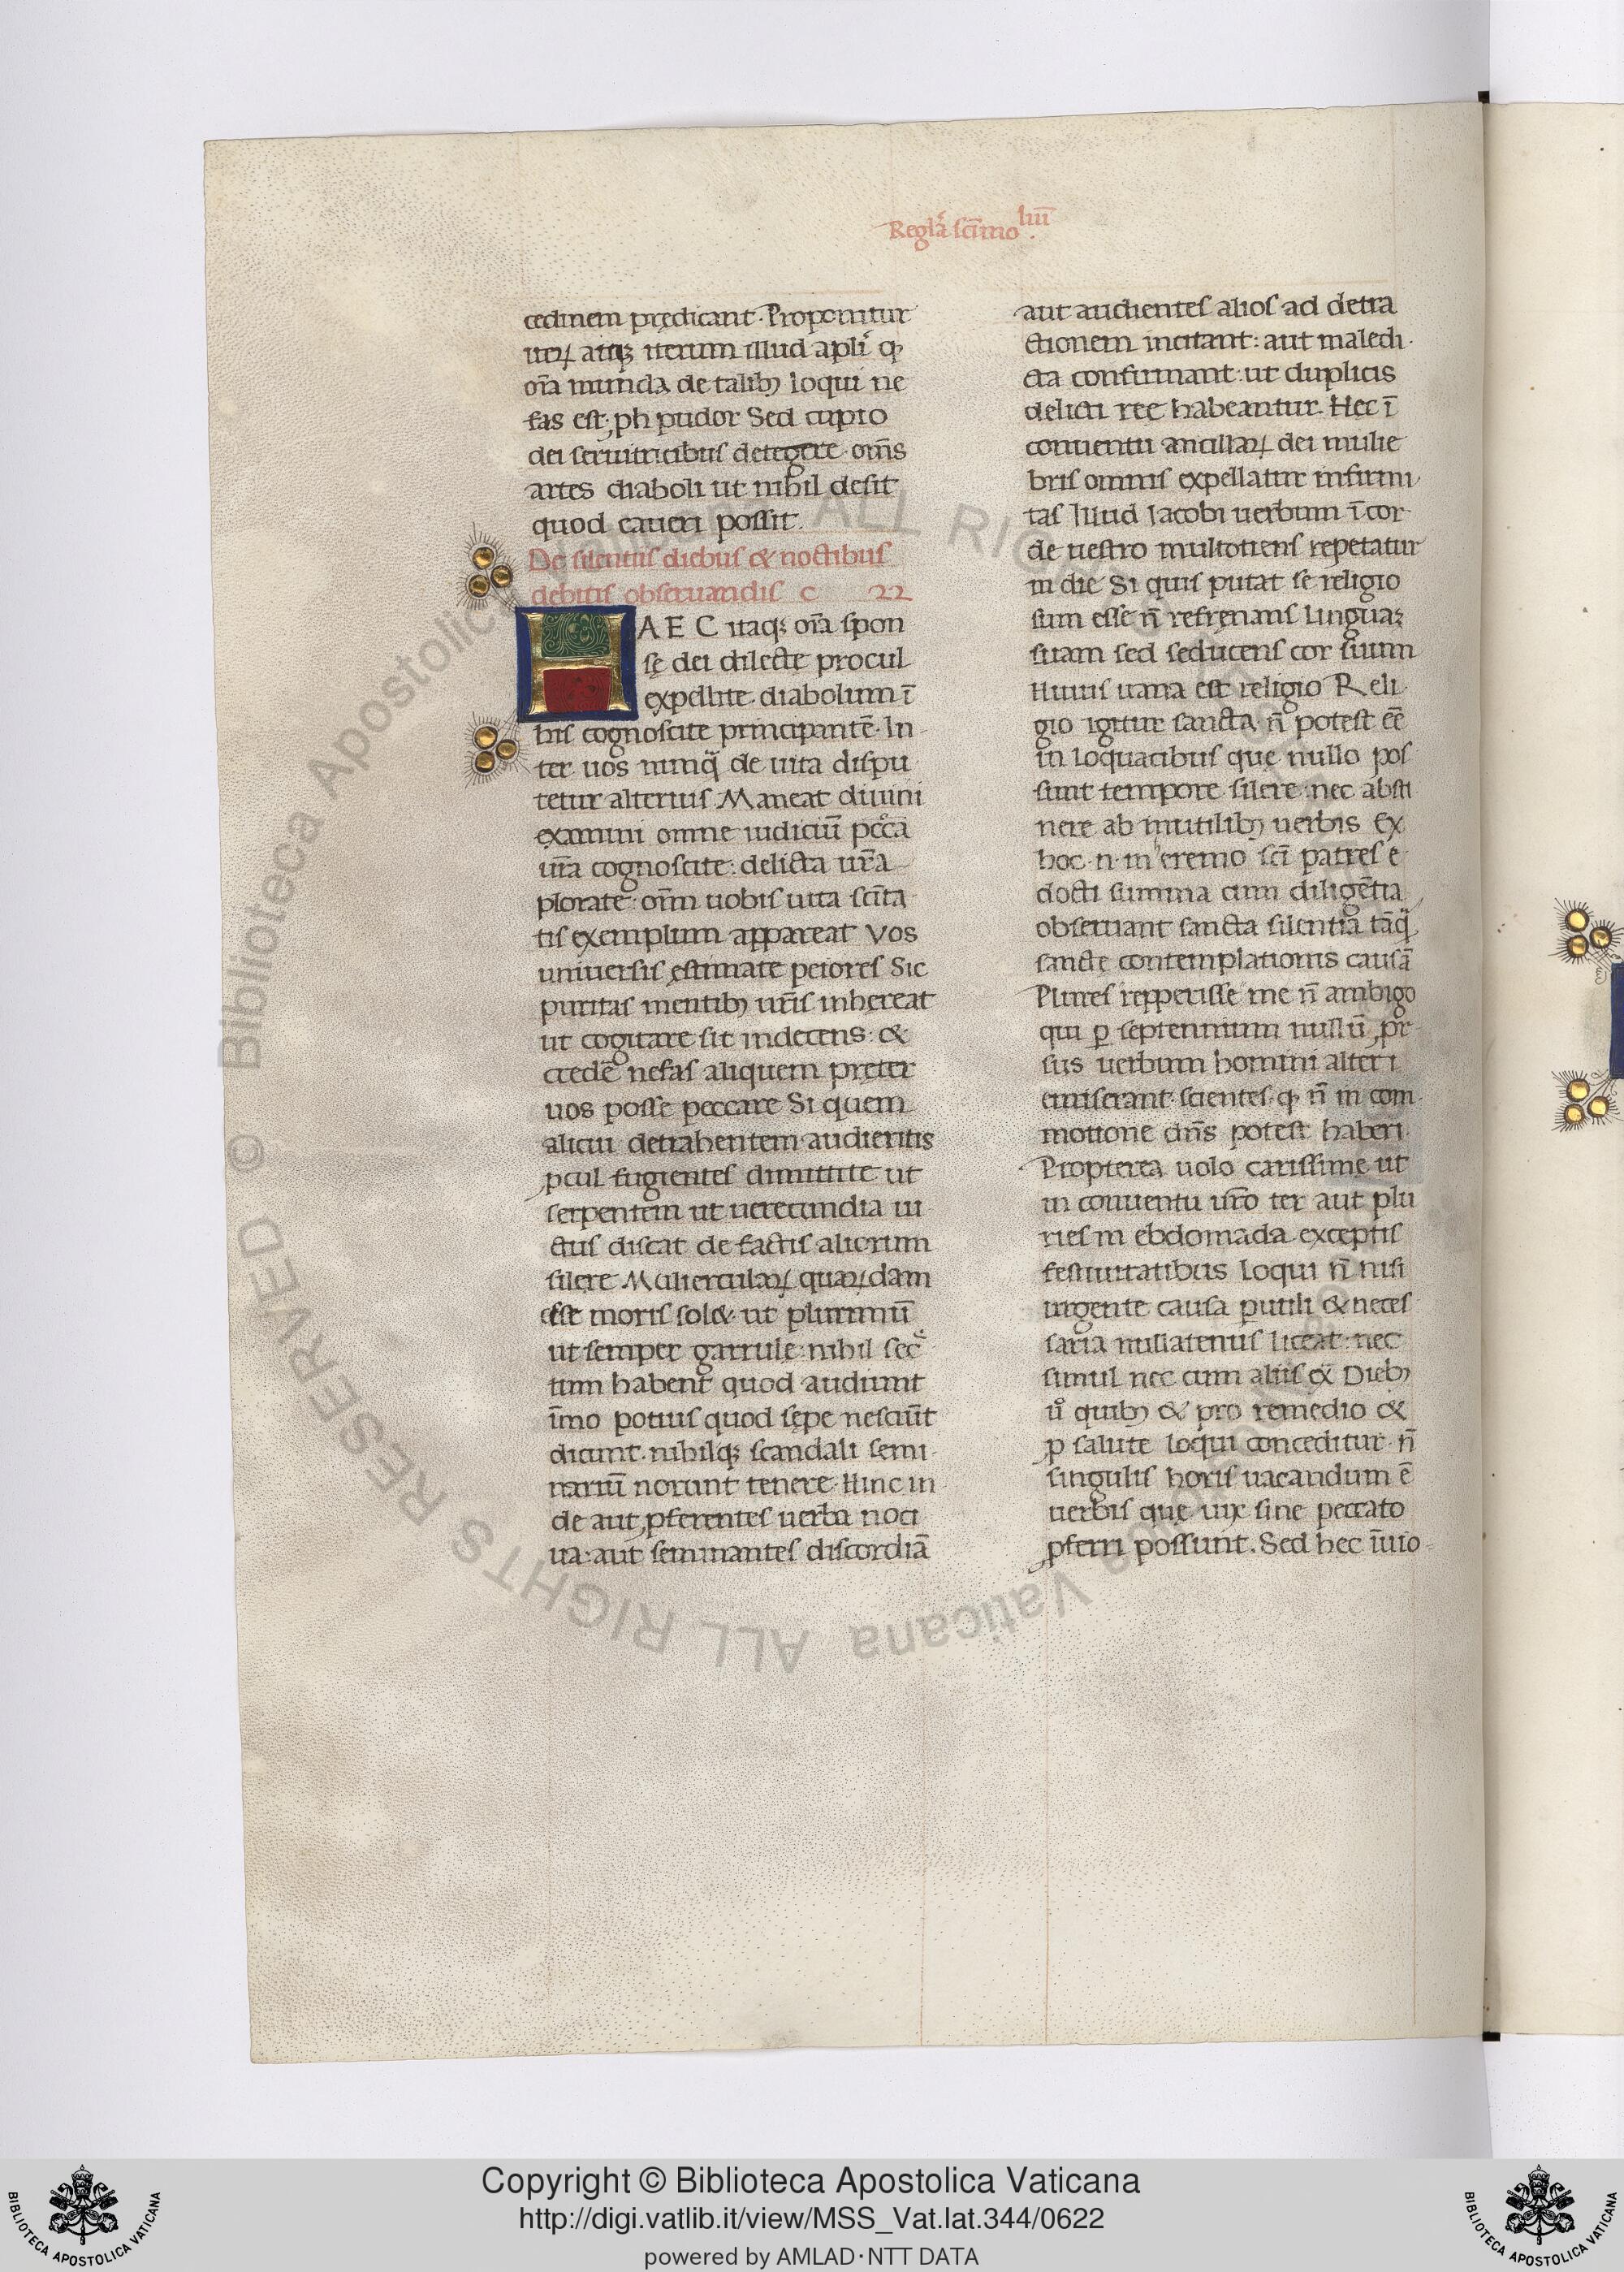 Regla᷑ scīmo liiii
cedinem prędicant. Proponitur
ueꝝ atqꝫ iterum illud apli᷑ ꝙ
om̄a munda de talibꝫ loqui ne
fas est; ꝓh pudor Sed cupio
dei seruitricibus detegere om̄s
artes diaboli ut nihil desit
quod caueri possit.
De silentiis diebus & noctibus
debitis obseruandis c 22
HAEC itaqꝫ om̄a spon
sę dei dilecte procul
expellite diabolum ī
his cognoscite principantē. In
ter uos nunq̈ de uita dispu
tetur alterius Maneat diuini
examini omne iudiciū pcc̄a
ur̄a cognoscite: delicta ur̄a
plorate: om̄m uobis uita scīta
tis exemplum appareat Vos
uniuersis ęstimate peiores Sic
puritas mentibꝫ ur̄is inhereat
ut cogitare sit indecens: &
credē nefas aliquem pręter
uos posse peccare Si quem
alicui detrahentem audieritis
ꝓcul fugientes dimittite ut
serpentem ut uerecundia ui
ctus discat de factis aliorum
silere Mulierculaꝝ quaꝝdam
esse moris sol& ut plurimū
ut semper garrule: nihil sec᷑
tum habent quod audiunt
īmo potius quod sępe nesciūt
dicunt. nihilqꝫ scandali semi
nariū norunt tenere. Hinc in
de aut ꝓferentes uerba noci
ua: aut seminantes discordiā
aut audientes alios ad detra
ctionem incitant: aut maledi
cta confirmant: ut duplicis
delicti ree habeantur. Hec ī
conuentu ancillaꝝ dei mulie
bris omnis expellatur infirmi
tas Illud Iacobi uerbum ī cor
de uestro multotiens repetatur
in die Si quis putat se religio
sum esse n̄ refrenans linguaꝫ
suam sed seducens cor suum
Huius uana est religio Reli
gio igitur sancta n̄ potest eē
in loquacibus quę nullo pos
sunt tempore silere: nec absti
nere ab inutilibꝫ uerbis Ex
hoc .n. in heremo scī patres e
docti summa cum diligētia
obseruant sancta silentia tāq̈
sancte contemplationis causā
Plures repperisse me n̄ ambigo
qui ꝑ septennium nullū ꝓr
sus uerbum homini alteri
emiserant scientes ꝙ n̄ in com
motione dn̄s potest haberi.
Propterea uolo carissimę ut
in conuentu ur̄o ter aut plu
ries in ebdomada exceptis
festiuitatibus loqui n̄ nisi
urgente causa ꝑutili & neces
saria nullatenus liceat: nec
simul nec cum aliis ex̄ Diebꝫ
ů quibꝫ & pro remedio &
ꝓ salute loqui conceditur n̄
singulis horis uacandum ē
uerbis quę uix sine peccato
ꝓferri possunt. Sed hec īuio
© Biblioteca Apostolica Vaticana ALL RIGHTS RESERVED
Copyright © Biblioteca Apostolica Vaticana
http://digi.vatlib.it/view/MSS_Vat.lat.344/0622
powered by AMLAD·NTT DATA
BIBLIOTECA APOSTOLICA VATICANA
BIBLIOTECA APOSTOLICA VATICANA